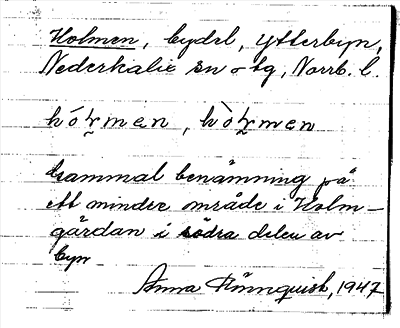 Holmen, bydel, Ytterbyn,
Nederkalix sn o tg, Norrb. l.
hólmen, hòlmen
Gammal benämning på
ett mindre område i Holm-
gårdan i södra delen av
byn
Anna Rönnquist, 1947